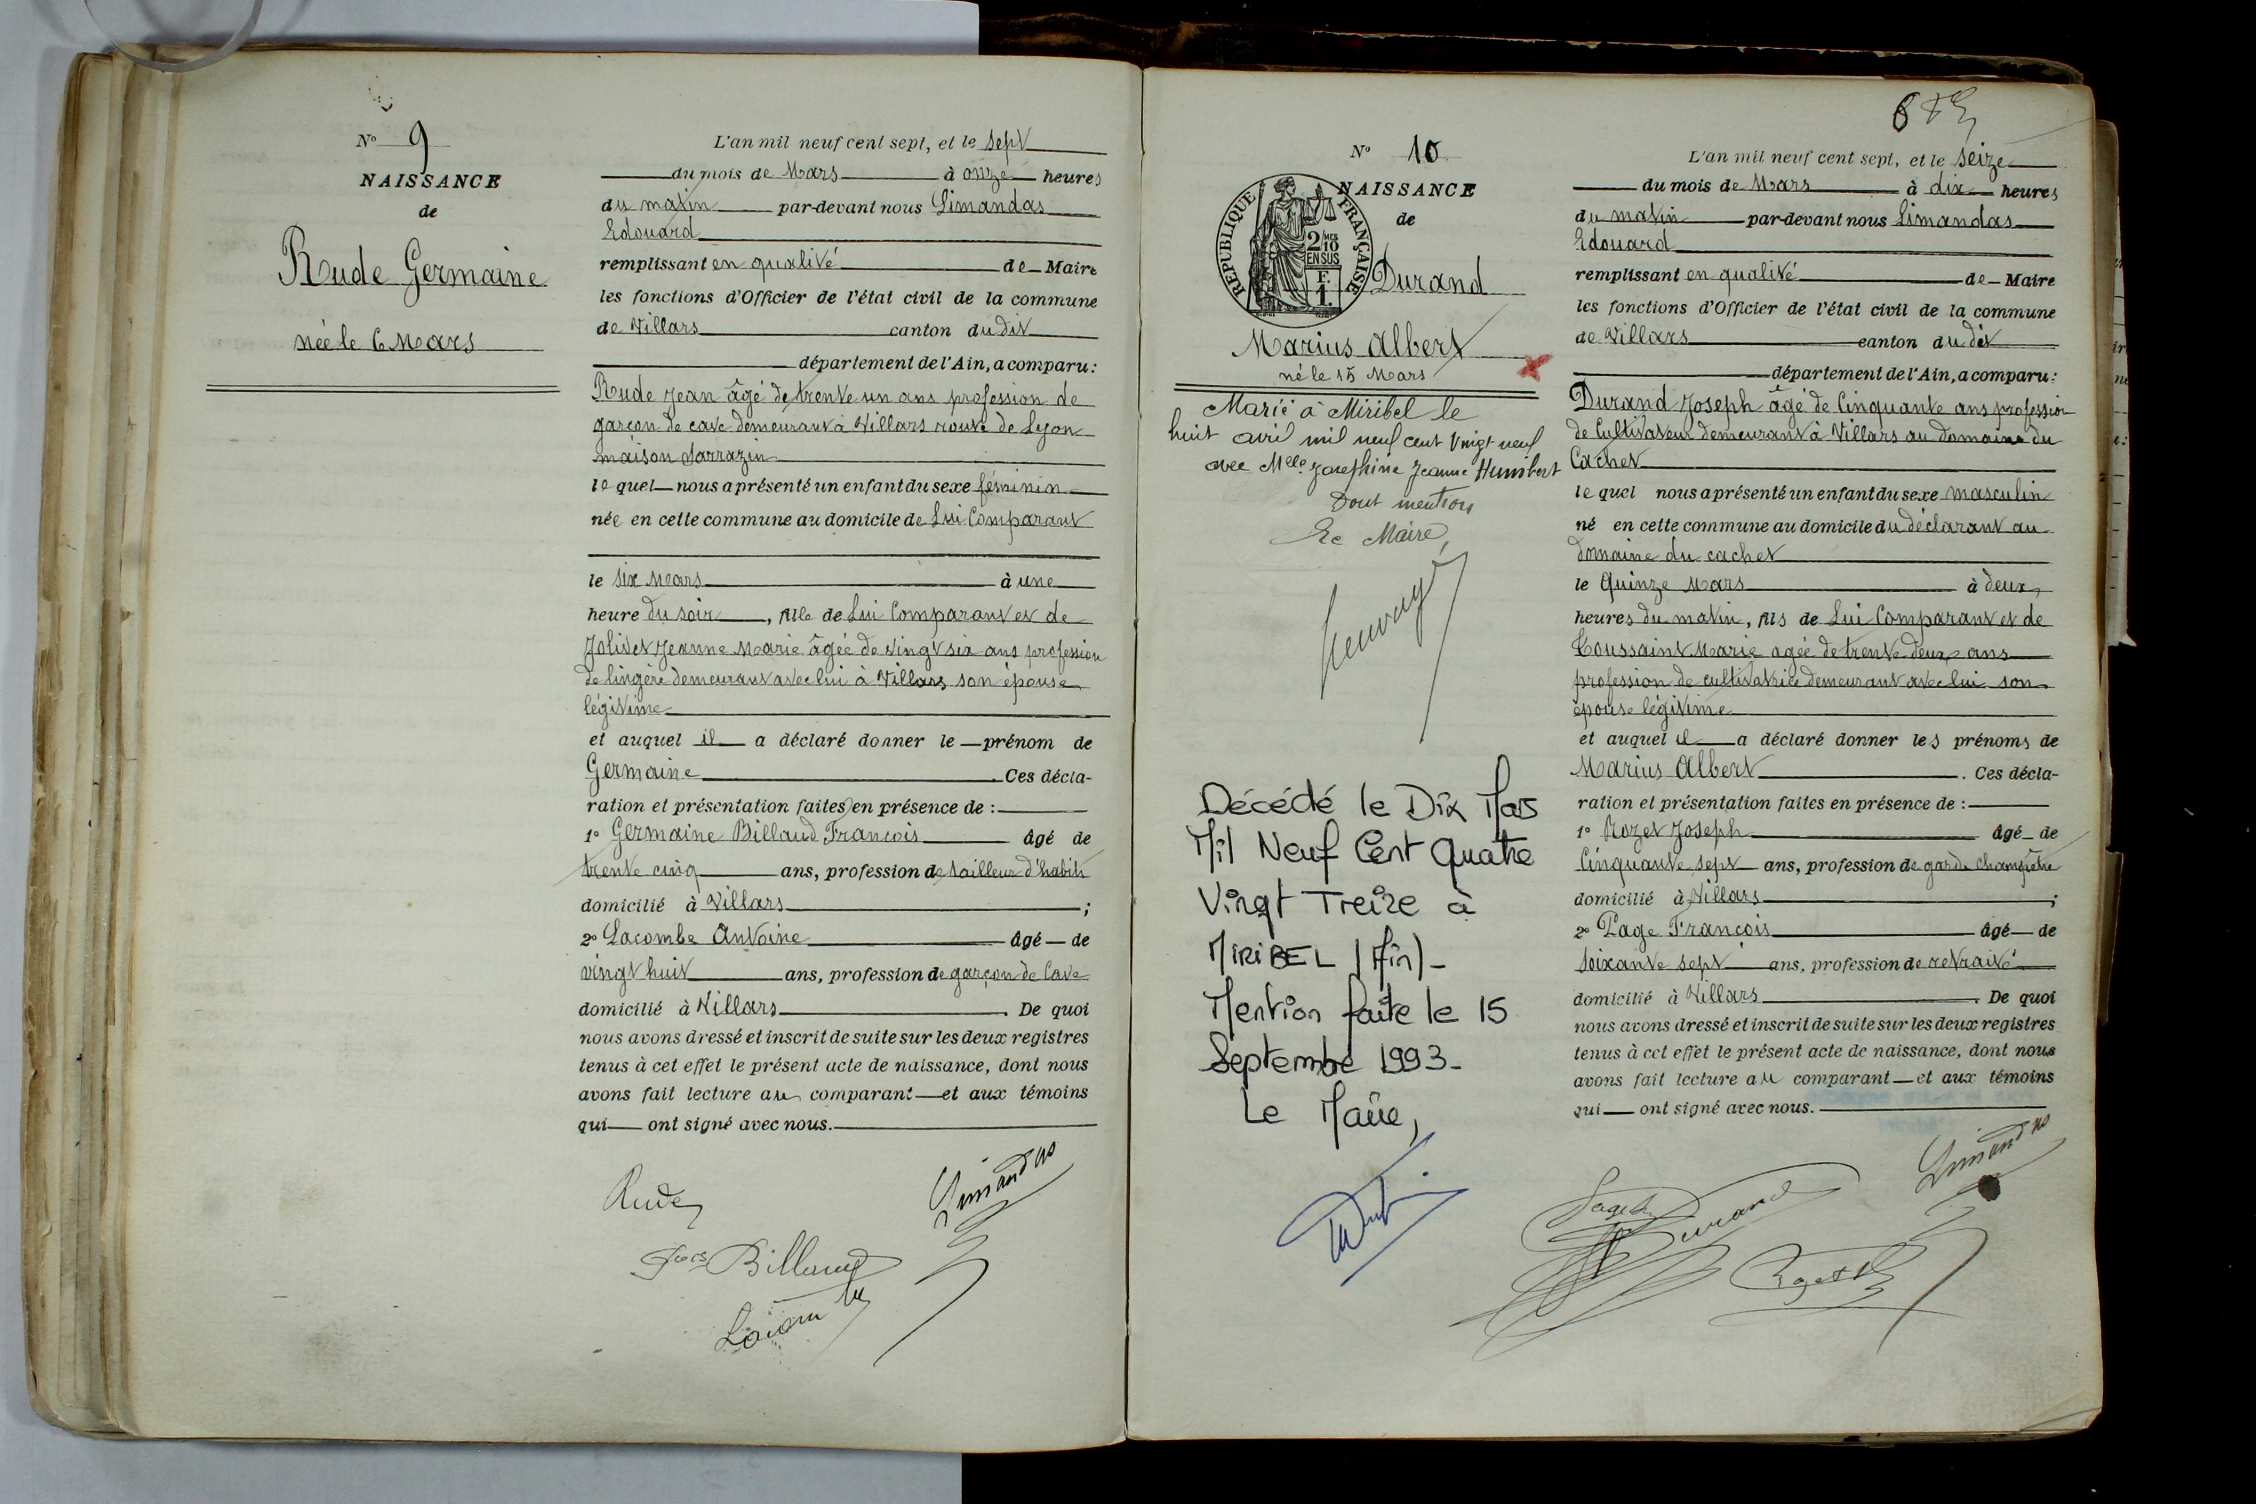 N° 9
NAISSANCE
de
Rude Germaine
née le 6 Mars
L'an mil neuf cent sept, et le sept
du mois de Mars à onze heures
du matin par-devant nous Limandas
Edouard
remplissant en qualité de Maire
les fonctions d'Officier de l'état civil de la commune
de Villars canton du dit
département de l'Ain, a comparu:
Rude Jean âgé de trente un ans profession de
garçon de cave demeurant à Villars route de Lyon
maison Sarrazin
lequel nous a présenté un enfant du sexe féminin
née en cette commune au domicile de Lui Comparant
le six Mars à une
heure du soir, fille de Lui Comparant et de
Jolivet Jeanne Marie âgée de vingt six ans profession
de lingère demeurant avec lui à Villars son épouse
légitime
et auquel il a déclaré donner le prénom de
Germaine. Ces décla-
ration et présentation faites en présence de :
1° Germaine Billaud François âgé de
trente cinq ans, profession de tailleur d'habits
domicilié à Villars ;
2° Lacombe Antoine âgé de
vingt huit ans, profession de garçon de Cave
domicilié à Villars. De quoi
nous avons dressé et inscrit de suite sur les deux registres
tenus à cet effet le présent acte de naissance, dont nous
avons fait lecture au comparant et aux témoins
qui ont signé avec nous.
Rude
Limandas
Billaud
Lacombe
N° 10
NAISSANCE
de
REPUBLIQUE FRANÇAISE
2/10 EN SUS
F. 1.
Durand
Marius Albert
né le 15 Mars
Marié à Miribel le
huit avril mil neuf cent vingt neuf
avec Melle Josephine Jeanne Humbert
Dont mention
Le Maire,
Décédé le Dix Mars
Mil Neuf Cent Quatre
Vingt Treize à
MIRIBEL (Ain)-
Mention faite le 15
Septembre 1993-
Le Maire,
L'an mil neuf cent sept, et le seize
du mois de Mars à dix heures
du matin par-devant nous Limandas
Edouard
remplissant en qualité de Maire
les fonctions d'Officier de l'état civil de la commune
de Villars canton du dit
département de l'Ain, a comparu:
Durand Joseph âgé de Cinquante ans profession
de Cultivateur demeurant à Villars au domaine du
Cachet
lequel nous a présenté un enfant du sexe masculin
né en cette commune au domicile du déclarant au
domaine du cachet
le Quinze Mars à deux
heures du matin, fils de Lui Comparant et de
Toussaint Marie agée de trente deux ans
profession de cultivatrice demeurant avec lui son
épouse légitime
et auquel il a déclaré donner les prénoms de
Marius Albert. Ces décla-
ration et présentation faites en présence de :
1° Rozet Joseph âgé de
Cinquante sept ans, profession de garde champêtre
domicilié à Villars ;
2° Page François âgé de
soixante sept ans, profession de retraité
domicilié à Villars. De quoi
nous avons dressé et inscrit de suite sur les deux registres
tenus à cet effet le présent acte de naissance, dont nous
avons fait lecture au comparant et aux témoins
qui ont signé avec nous.
Limandas
Page
Durand